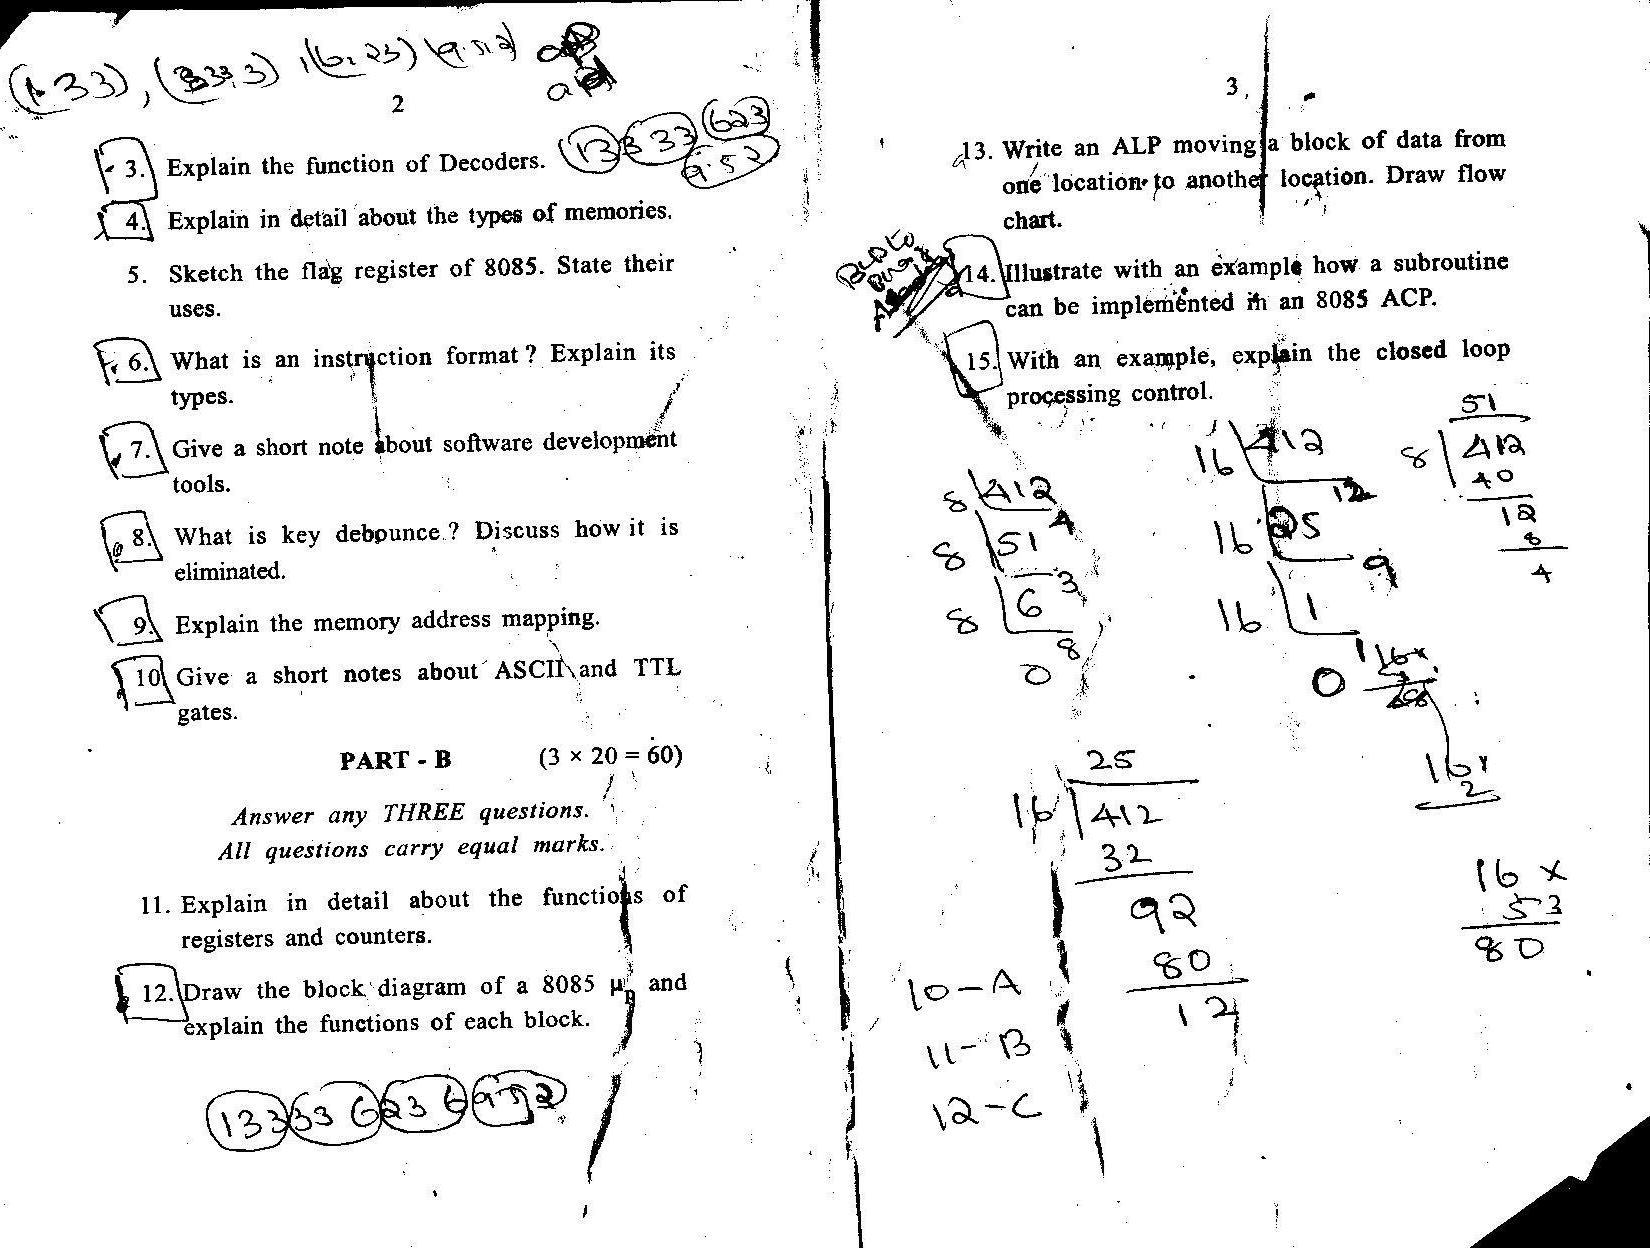 2
3. Explain the function of Decoders.
4. Explain in detail about the types of memories.
5. Sketch the flag register of 8085. State their
uses.
6. What is an instruction format ? Explain its
types.
7. Give a short note about software development
tools.
8. What is key debounce ? Discuss how it is
eliminated.
9. Explain the memory address mapping.
10. Give a short notes about ASCII and TTL
gates.
PART - B (3 × 20 = 60)
Answer any THREE questions.
All questions carry equal marks.
11. Explain in detail about the functions of
registers and counters.
12. Draw the block diagram of a 8085 μp and
explain the functions of each block.
3
13. Write an ALP moving a block of data from
one location to another location. Draw flow
chart.
14. Illustrate with an example how a subroutine
can be implemented in an 8085 ACP.
15. With an example, explain the closed loop
processing control.
8 412
8 51 4
8 6 3
0
16 412
16 25 12
16 1 9
0 1
51
8 412
40
12
8
4
25
16 412
32
92
80
12
16 ×
80
10-A
11-B
12-C